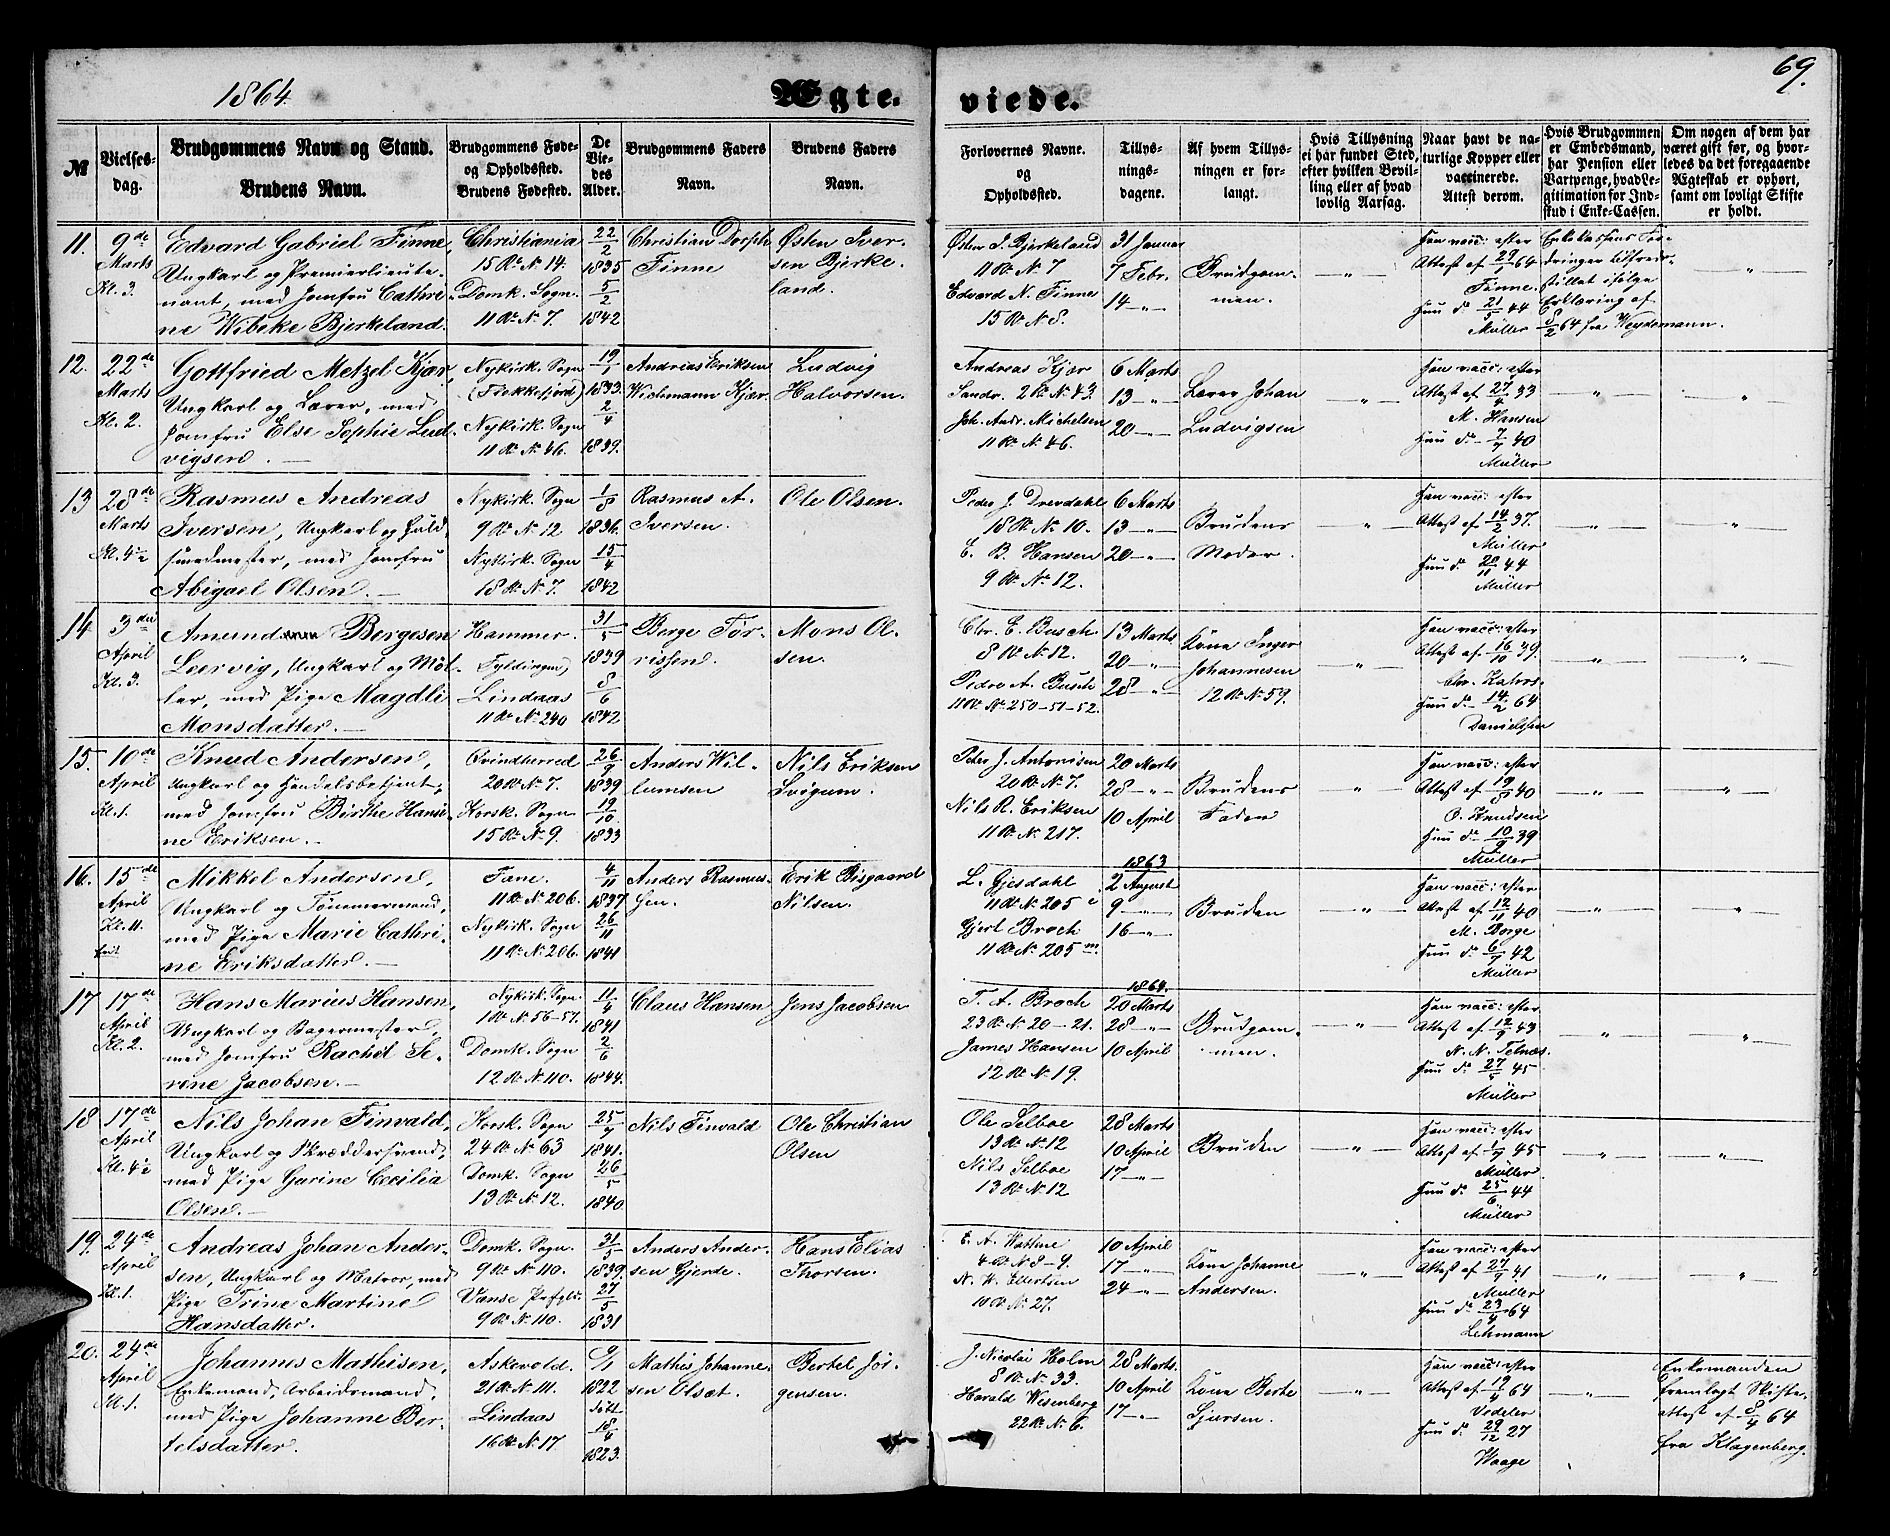 1864.
Ægte.
viede.
69.
№
Vielses-
dag.
Brudgommens Navn og Stand.
Brudens Navn.
Brudgommens Føde-
og Opholdssted.
Brudens Fødested.
De
Vie-
des
Alder.
Brudgommens Faders
Navn.
Brudens Faders
Navn.
Forlovernes Navne.
og
Opholdssted.
Tillys-
nings-
dagene.
Af hvem Tillys-
ningen er for-
langt.
Hvis Tillysning
ei har fundet Sted,
efter hvilken Bevil-
ling eller af hvad
lovlig Aarsag.
Naar havt de na-
turlige Kopper eller
vaccinerede.
Attest derom.
Hvis Brudgommen
er Embedsmand,
har Pension eller
Vartpenge, hvad Le-
gitimation for Ind-
skud i Enke-Cassen.
Om nogen af dem har
været gift før, og hvor-
ledes da det foregaaende
Ægteskab er ophørt,
samt om lovligt Skifte
er holdt.
11.
9de
Marts
Kl. 3.
Edvard Gabriel Finne,
Ungkarl og Premierlieute-
nant, med Jomfru Cathri-
ne Wibeke Bjerkeland.
Christiania
15 Rd. N. 14.
Domk. Sogn.
11 Rd. N. 7.
22/2
1835
5/2
1842
Christian Dorph
Finne
Østen Iver-
sen Bjerke-
land.
Østen I. Bjerkeland
11 Rd. N. 7
Edvard N. Finne
15 Rd. N. 8.
31 Januar
7 Febr.
14 — " —
Brudgom-
men.
— " —
Han vacc: efter
Attest af 29/1 64
Finne.
Hun do 21/5 44
Müller
Enkekassens For-
dringer tilfreds-
stillet ifølge
Erklæring af
8/2 64 fra Weydemann.
— " —
12.
22de
Marts
Kl. 2.
Gottfried Metzel Kjær,
Ungkarl og Lærer, med
Jomfru Else Sophie Lud-
vigsen. —
Nykirk. Sogn
(Flekkefjord)
Nykirk. Sogn
11 Rd. N. 46.
19/1
1833.
2/4
1839.
Andrias Eriksen
Wichmann Kjær.
Ludvig
Halvorsen.
Andreas Kjær
Sandv. 2 Rd. N. 43.
Joh. Andr. Michelsen
11 Rd. N. 46.
6 Marts
13 — " —
20 — " —
Lærer Johan
Ludvigsen
— " —
Han vacc: efter
Attest af 27/4 33
M. Hansen
Hun do 7/7 40
Müller
— " —
"
13
28de
Marts
Kl. 4½
Rasmus Andreas
Iversen, Ungkarl og Guld-
smedmester, med Jomfru
Abigael Olsen. —
Nykirk. Sogn
9 Rd. N. 12
Nykirk. Sogn
18 Rd. N. 7.
1/8
1836.
15/4
1842
Rasmus A.
Iversen.
Ole Olsen.
Peder J. Drevdahl
18 Rd. No. 10.
E. B. Hansen
9 Rd. No. 12.
6 Marts
13 — " —
20 — " —
Brudens
Moder.
— " —
Han vacc: efter
Attest af 14/2 37.
Müller
Hun do 20/11 44
Müller
— " —
— " —
14
3die
April
Kl. 3.
Amund Børgesen
Leervig, Ungkarl og Møl-
ler, med Pige Magdli
Monsdatter. —
Hammer.
Fyldingen)
Lindaas
11 Rd. N. 240
31/5
1839
8/6
1842
Børge Tør-
rissen.
Mons Ol-
sen.
Chr. E. Busch.
8 Rd. N. 12.
Peder A. Busch
11 Rd. N. 250-51-52.
13 Marts
20 — " —
28 — " —
Kone Inger
Johannesen
12 Rd. N. 59.
— " —
Han vacc: efter
Attest af 16/10 39.
Chr. Kahrs.
Hun do 14/2 64
Danielssen
— " —
"
15.
10de
April
Kl. 1.
Knud Andersen,
Ungkarl og Handelsbetjent,
med Jomfru Birthe Hansi-
ne Eriksen. —
Qvindherred
20 Rd. N. 7.
Korsk. Sogn.
15 Rd. N. 9.
26/9
1839
19/10.
1833
Anders Wil-
lumsen
Nils Eriksen
Svigum.
Peter J. Antonisen
20 Rd. N. 7.
Nils R. Eriksen
11 Rd. N. 217.
20 Marts
28 — " —
10 April
Brudens
Fader
— " —
Han vacc: efter
Attest af 19/8 40
O. Knudsen
Hun do 10/9 39
Müller
— " —
— " —
16.
15de
April
Kl. 11.
Mikkel Andersen,
Ungkarl og Tømmermand,
med Pige Marie Cathri-
ne Eriksdatter. —
Fane.
11 Rd. N. 206.
Nykirk. Sogn
11 Rd. N. 206.
4/11
1837
26/11
1841
Anders Rasmus-
sen.
Erik Bisgaard
Nilsen.
L. Gjesdahl
11 Rd. N. 205 i
Gjert Broch
11 Rd. N. 205 m.
1863
2 August
9 — " —
16 — " —
Bruden
— " —
Han vacc: efter
Attest af 12/11 40
M. Borge
Hun do 6/7 42
Müller
— " —
"
17
17de
April
Kl. 2.
Hans Marius Hansen,
Ungkarl og Bagermester,
med Jomfru Rachel Se-
rine Jacobsen. —
Nykirk. Sogn.
1 Rd. N. 56-57.
Domk. Sogn
12 Rd. N. 110.
11/4
1841
2/6
1844.
Claus Hansen
Jens Jacobsen
T. A. Broch
23 Rd. N. 20-21.
James Hansen
12 Rd. N. 19.
1864.
20 Marts
28 — " —
10 April
Brudgom-
men.
— " —
Han vacc: efter
Attest af 12/9 43
N. N. Telnæs.
Hun do 27/5 45
Müller
"
— " —
18
17de
April
Kl. 4½
Nils Johan Finvald,
Ungkarl og Skræddersvend,
med Pige Garine Cecilia
Olsen. —
Korsk. Sogn
24 Rd. N. 63
Domk. Sogn
13 Rd. N. 12.
25/7
1841.
26/5
1840
Nils Finvald
Ole Christian
Olsen
Ole Selboe
13 Rd. N. 12
Nils Selboe
13 Rd. N. 12
28 Marts
10 April
17 — " —
Bruden
— " —
Han vacc: efter
Attest af 1/7 45
Müller
Hun do 25/6 44
Müller
— " —
— " —
19.
24de
April
Kl. 1.
Andreas Johan Ander-
sen, Ungkarl og Matros, med
Pige Trine Martine
Hansdatter.
Domk. Sogn.
9 Rd. N. 110.
Vanse Præstgld.
9 Rd. N. 110.
31/5
1839.
27/5
1831
Anders Ander-
sen Gjerde.
Hans Elias
Thorsen.
E. A. Wattne
4 Rd. N. 8-9.
N. W. Ellertsen
10 Rd. N. 27.
10 April
17 — " —
24 — " —
Kone Johanne
Andersen.
— " —
Han vacc: efter
Attest af 27/9 41
Müller
Hun do 23/4 64
Lehmann
"
"
20.
24de
April
Kl. 1.
Johannes Mathisen,
Enkemand, Arbeidsmand,
med Pige Johanne Ber-
telsdatter.
Askevold.
21 Rd. N. 111.
Lindaas
16 Rd. N. 17
1822
døbt
18/4
1823.
Mathis Johanne-
sen Olsæt.
Bertel Jør-
gensen.
J. Nicolai Holm
8 Rd. N. 33.
Harald Wesenberg
22 Rd. N. 6.
28 Marts.
10 April
17 — " —
Kone Berte
Sjursen.
— " —
Han vacc: efter
Attest af 19/4 64
Vedeler
Hun do 29/12 27
Waage
— " —
Enkemanden
fremlagt Skifte-
attest af 8/4 64
fra Klagenberg.